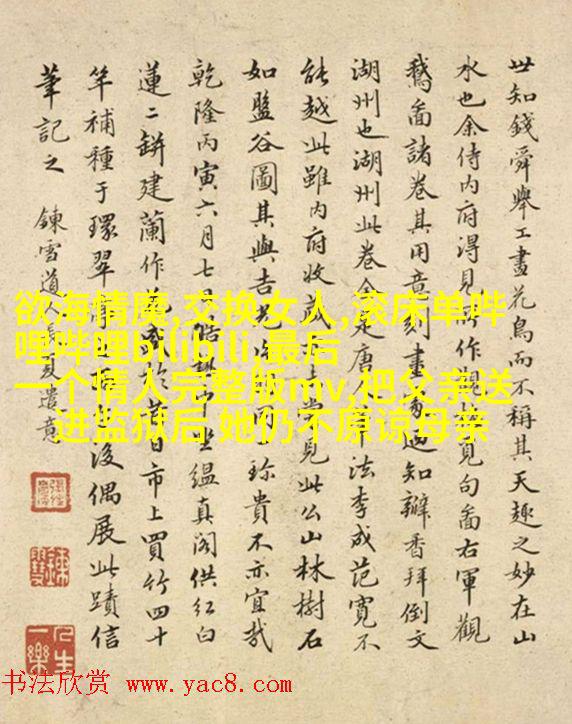 世知錢舜舉工畫花鳥而不稱其天趣之妙在山
水也余侍内府得見所作見句啚右軍觀
鵝啚諸卷其用意刻畫知瓣香拜倒文
湖州也湖州此卷全是唐法李成范寬不
能越此雖内府收藏見此公山林樹石
如盤谷圖其與吉光珎貴不亦宜哉
乾隆丙寅六月七坐縕真阁供红白
蓮二缾建蘭作市上買竹四十
竿補種于環翠後偶展此蹟信
筆記之 鍊雪道人長夏遣意
欲海情魔,交换女人,滚床单哔
哩哔哩bilibili,最后
一个情人完整版mv,把父亲送
进监狱后 她仍不原谅母亲
人生一樂
书法欣赏 www.yac8.com